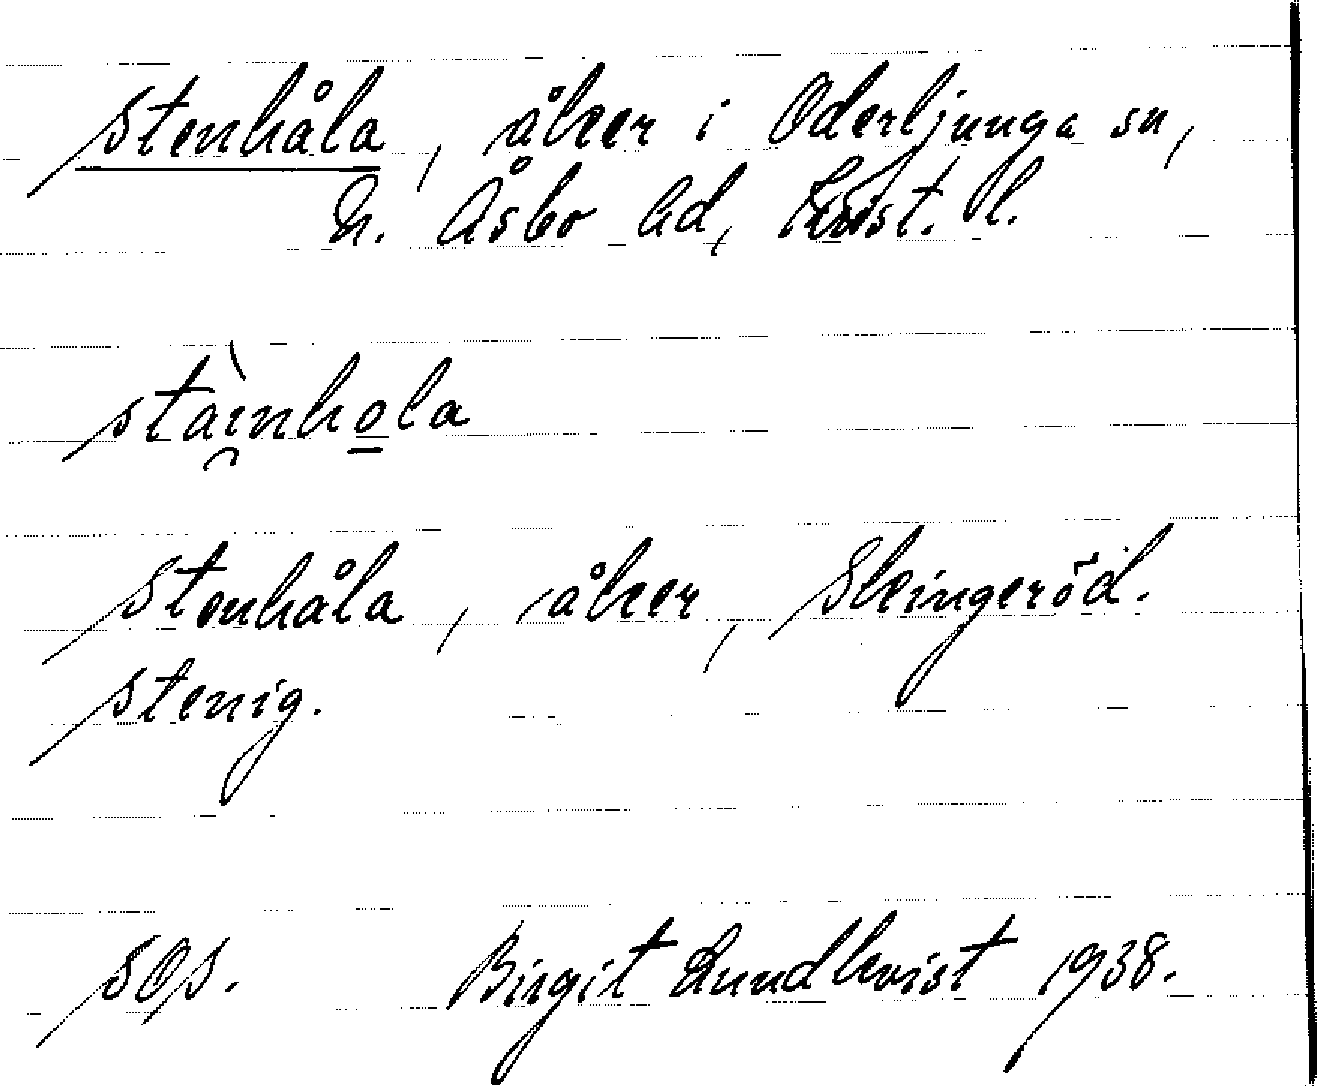 Stenhåla, åker i Oderljunga sn,
N. Åsbo hd, Krist. l.
stàinhola
Stenhåla, åker, Skingeröd.
stenig.
SOS. Birgit Lundkvist 1938.